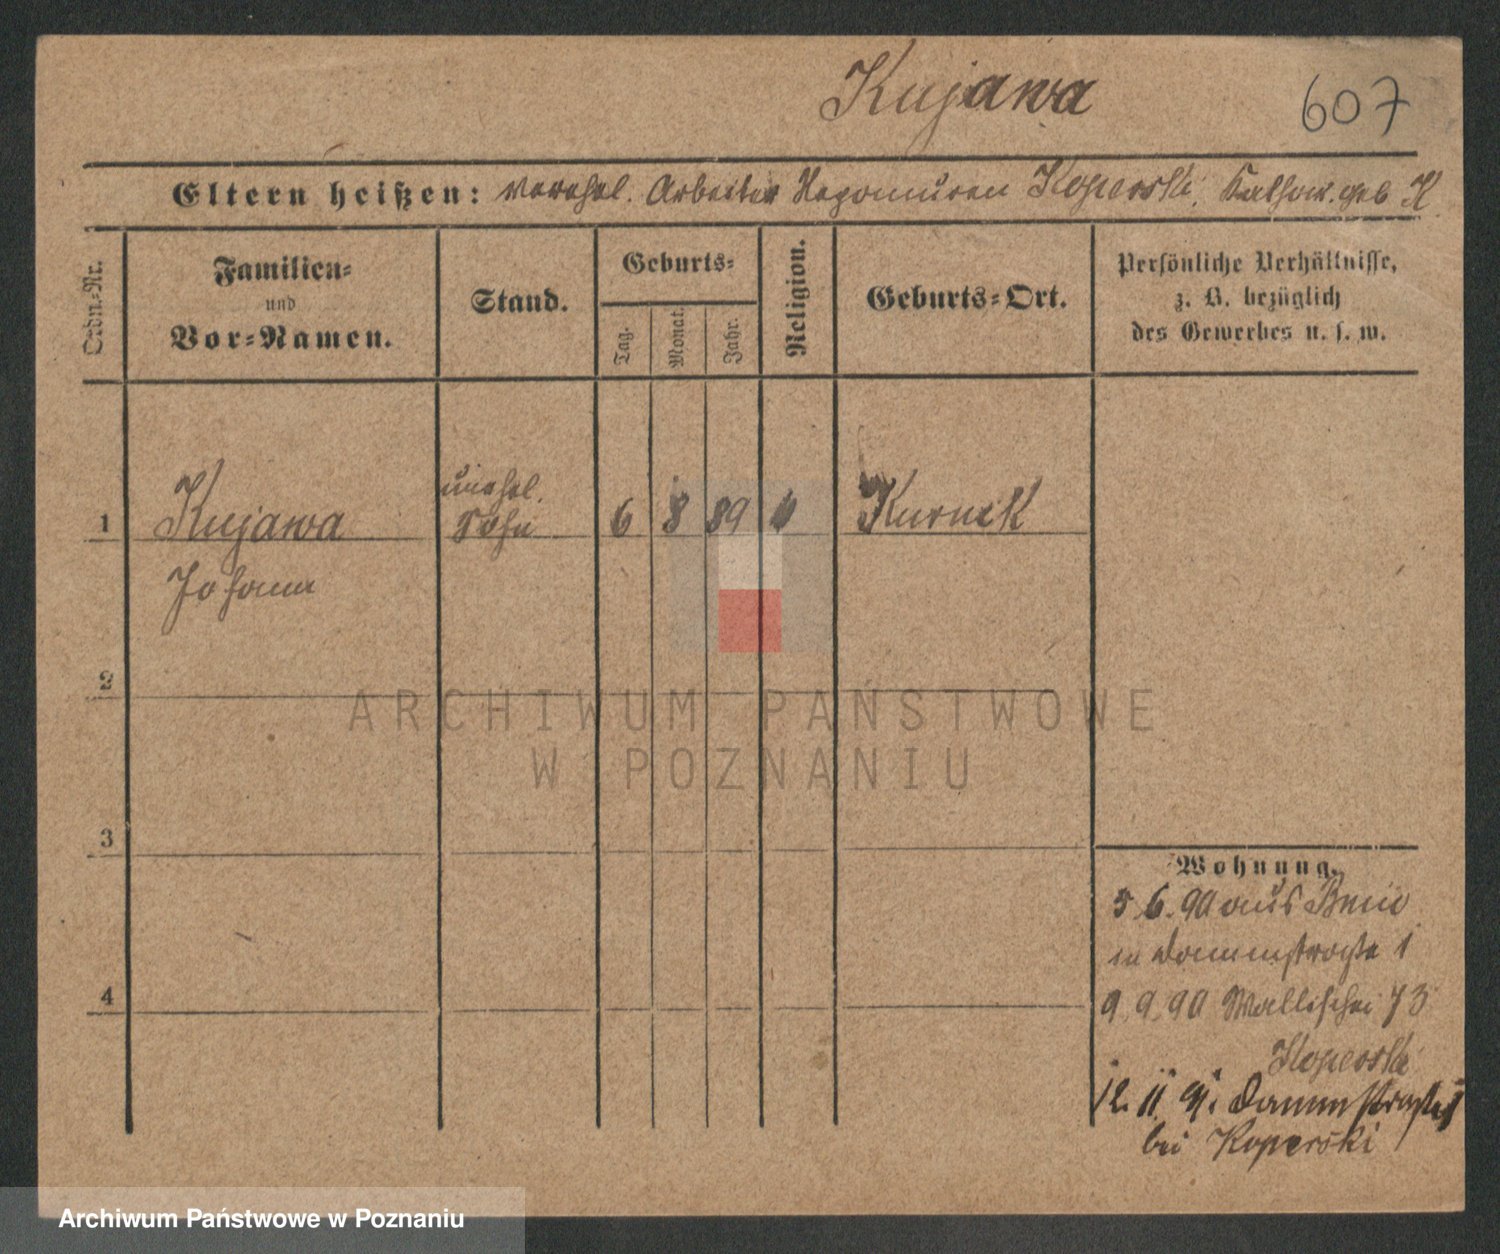 Kujawa
607
Eltern heißen: verehel. Arbeiter Nepomucen Koperski, Kathar. geb K
Ordn.-Nr.
Familien-
und
Vor-Namen.
Stand.
Geburts-
Tag.
Monat.
Jahr.
Religion.
Geburts-Ort.
Persönliche Verhältnisse,
z. B. bezüglich
des Gewerbes u. s. w.
unehel.
1 Kujawa Sohn 6 8 89 k Kurnik
Johann
2
ARCHIWUM PAŃSTWOWE
W POZNANIU
3
Wohnung.
5.6.90 aus Bnin
in Dammstraße 1
4
9.9.90 Wallischei 73
Koperski
12. 11. 91. Dammstraße 1
bei Koperski
Archiwum Państwowe w Poznaniu